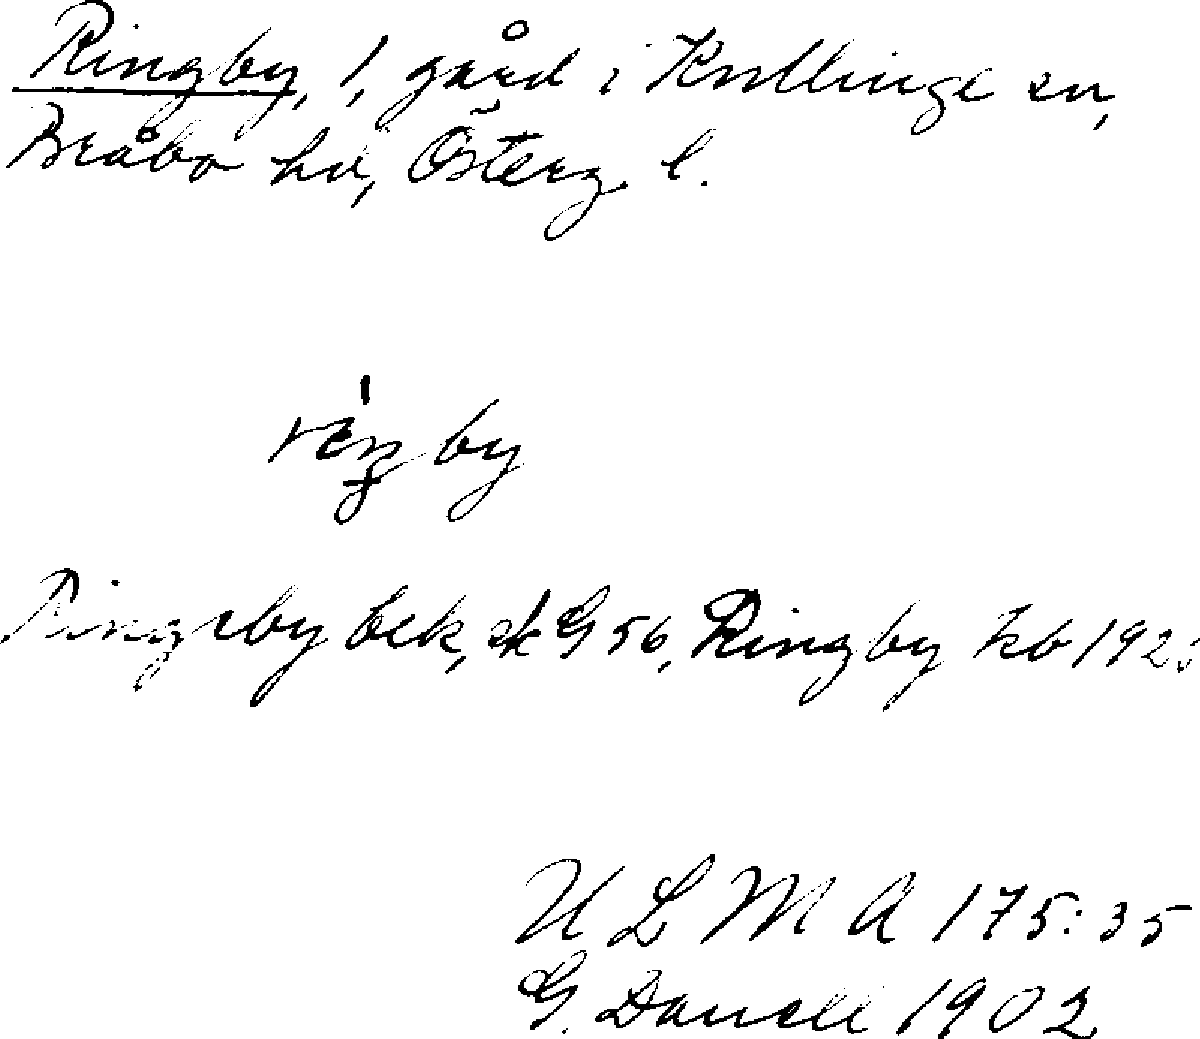 Ringby, 1, gård i Kullinge sn,
Bråbo hd, Österg. l.
by
Ringsby bek, ek G 56, Ringby kb
ULMA 175:35
G. Danell 1902